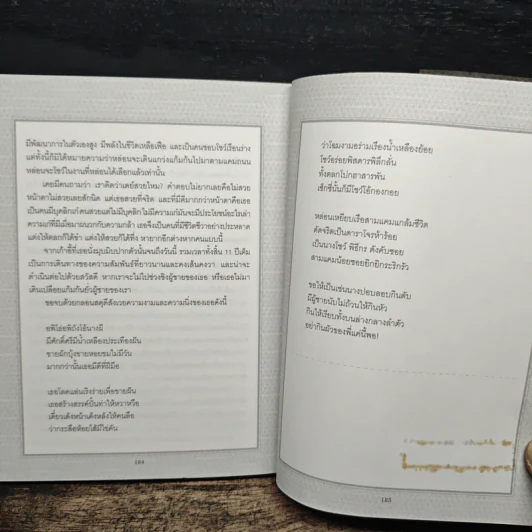 มีพัฒนาการในตัวเองสูง มีพลังในชีวิตเหลือเฟือ และเป็นคนชอบโชว์เรือนร่าง
แต่ทั้งนี้ก็มิได้หมายความว่าหล่อนจะเดินแกว่งแก้มก้นไปมาตามแคมถนน
หล่อนจะโชว์ในงานที่หล่อนได้เลือกแล้วเท่านั้น
เคยมีคนถามว่า เราคิดว่าเดย์สวยไหม? คำตอบไม่ยากเลยคือไม่สวย
หน้าตาไม่สวยเลยสักนิด แต่เธอสวยที่จริต และที่มีดีมากกว่าหน้าตาคือเธอ
เป็นคนมีบุคลิกเก๋ คนสวยแต่ไม่มีบุคลิก ไม่มีความเก๋มันจะมีประโยชน์อะไรเล่า
ความเก๋ที่มีเมื่อมาผนวกกับความกล้า เธอจึงเป็นคนที่มีชีวิตชีวาอย่างประหลาด
แต่งให้ตลกก็ได้ขำ แต่งให้สวยก็ได้ทึ่ง หายากอีกต่างหากคนแบบนี้
จากเก้าอี้ที่เธอนั่งมุบมิบเปากตัวนั้นจนถึงวันนี้ รวมเวลาทั้งสิ้น 11 ปีเต็ม
เป็นการเดินทางของความสัมพันธ์ที่ยาวนานและคงเส้นคงวา และน่าจะ
ดำเนินต่อไปด้วยสวัสดี หากเราจะไม่ไปช่วงชิงผู้ชายของเธอ หรือเธอไม่มา
เดินเปลือยแก้มก้นยั่วผู้ชายของเรา
ขอจบด้วยกลอนสดุดีสังเวยความงามและความนิ่งของเธอดังนี้
มีศักดิ์ศรีมีน้ำเหลืองประเทืองผิน
ขายผักบุ้งขายหอยขมไม่มีวัน
มากกว่านั้นเธอมีดีที่ฝีมือ
เธอโดดเด่นเริงร่ายเพื่อขายฝัน
เธอสร้างสรรค์ปั้นทำให้หวาหวือ
เดี๋ยวเด้งหน้าเด้งหลังให้คนลือ
ว่ากระสือห้อยไส้มีไข่ดัน
184
ว่าโฉมงามอร่ามเรืองน้ำเหลืองย้อย
โชว์อร่อยพิสดารพิลึกลั่น
ทั้งตลกโปกฮาสารพัน
เซ็กซี่นั้นก็มีโชว์โอ้กองกอย
หล่อนเหยียบเรือสามแคมแกล้มชีวิต
ดัดจริตเป็นดาราโจรห้าร้อย
เป็นนางโชว์ พิธีกร ดังคับซอย
สามแคมน้อยซอยยิกยิกระริกรัว
ขอให้เป็นเช่นนางปอบลอบกินตับ
มีผู้ชายนับไม่ถ้วนให้กินหัว
กินให้เรียบทั้งบนล่างกลางลำตัว
อย่ากินผัวของพี่แค่นี้พอ!
185